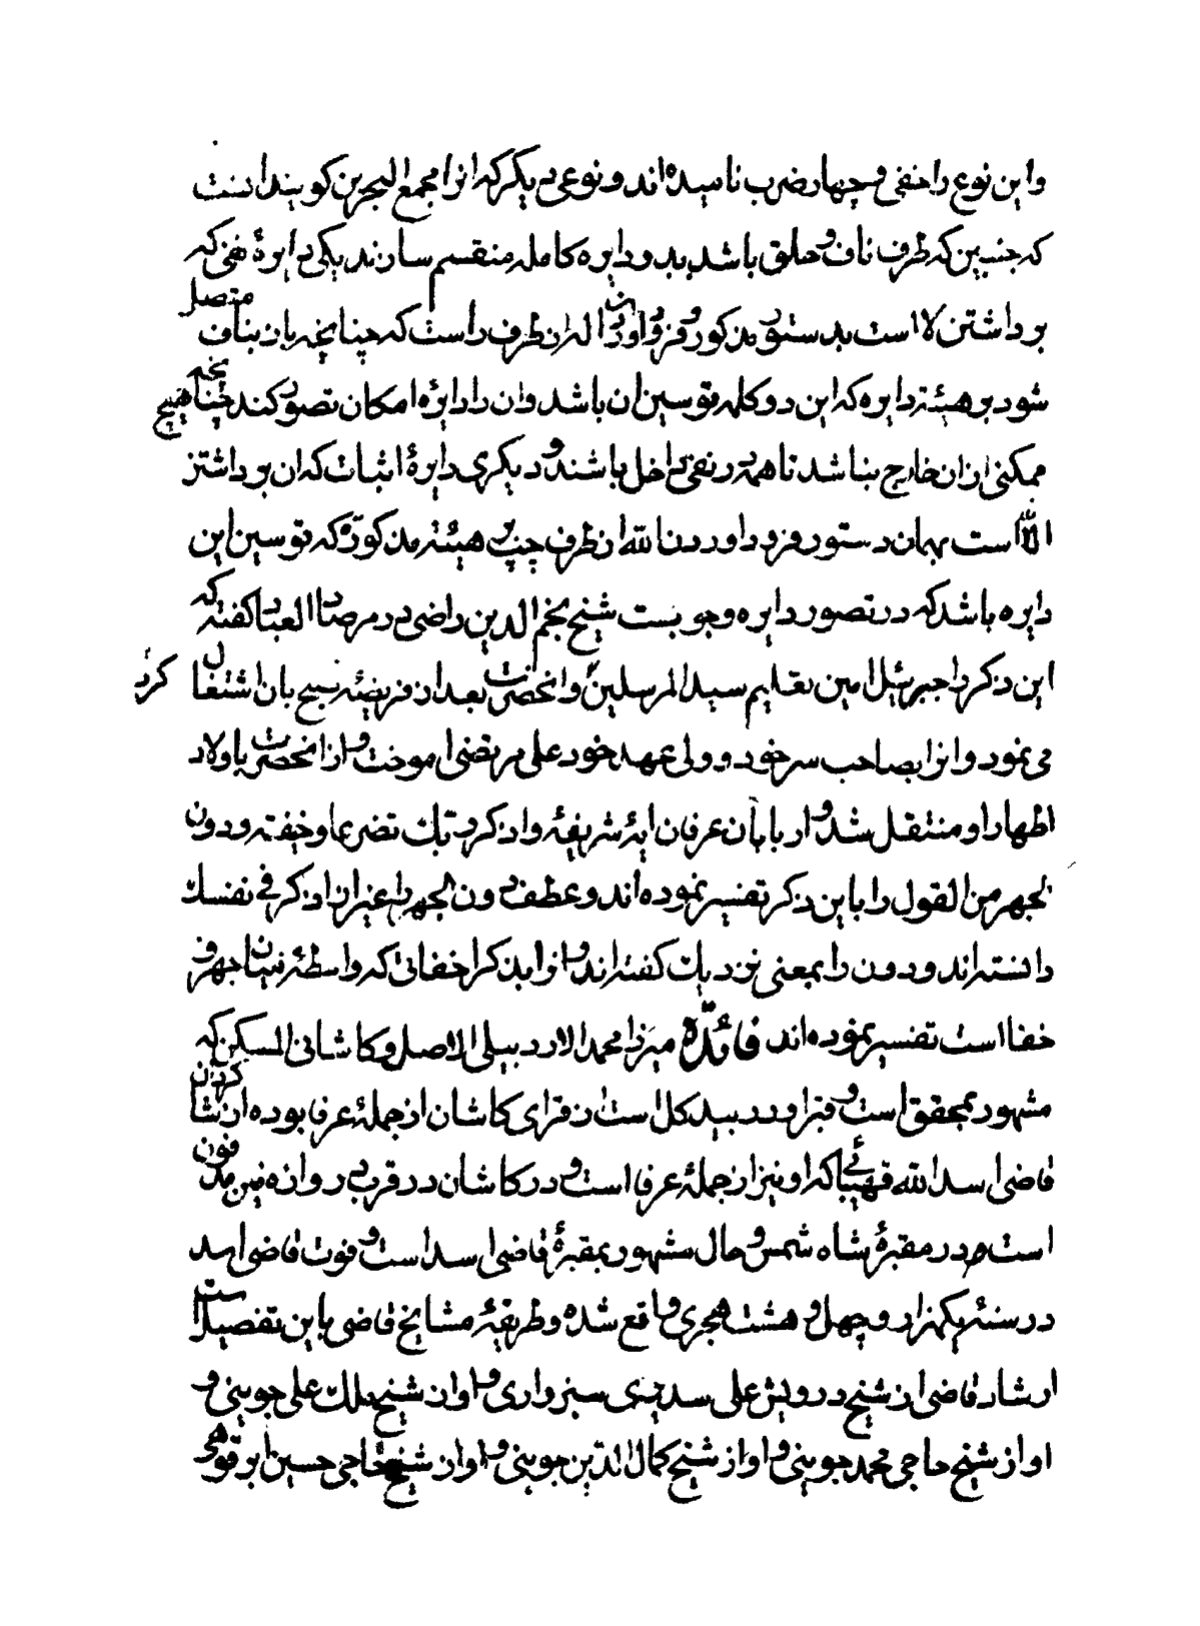 واین نوع را خفی و چهار ضرب نامیده اند و نوعی دیکر که انرا مجمع البحرین کویند انست
که جنبین که طرف ناف و حلق باشد بدو دایره کامله منقسم سازند یکی دایرهٔ نفی که
برداشتن لا است بدستور مذکور و فرود اوردن اله از طرف راست که چنانچه بان بناف متصل
شود بر هیئة دایره که این دو کلمه قوسین ان باشد وان را دایرهٔ امکان تصور کند چنانچه هیچ
ممکنی ازان خارج نباشد تا همه در نفی داخل باشند و دیکری دایرهٔ اثبات که ان برداشتن
الا است بهمان دستور و فرود اوردن الله از طرف چپ بر هیئة مذکوره که قوسین این
دایره باشد که در تصور دایره وجوبست شیخ نجم الدین راضی در مرصاد العباد کفته که
این ذکر را جبرئیل امین تعلیم سید المرسلین و انحضرت بعد از فریضهٔ صبح بان اشتغال کرد
می نمود وانرا بصاحب سر خود و ولی عهد خود علی مرتضی اموخت و از انحضرت باولاد
اطهار او منتقل شد و اربابان عرفان ایهٔ شریفهٔ واذکر ربک تضرعا وخفیة ودون
الجهر من القول را باین ذکر تفسیر نموده اند و عطف دون الجهر را غیر از اذکر فی نفسک
دانسته اند و دون را بمعنی نزدیک کفته اند و انرا بذکر اخفاتی که واسطهٔ میان جهر و
خفا است تفسیر نموده اند فائدّه میرزا محمد الاردبیلی الاصل و کاشانی المسکن که
مشهور بمحقق است و قبر او در بیدکل است از قرای کاشان از جملهٔ عرفا بوده از شاکردان
قاضی اسد الله قهپائی که او نیز از جملهٔ عرفا است و در کاشان در قرب دروازه فین مدفون
است و در مقبرهٔ شاه شمس و حال مشهور بمقبرهٔ قاضی اسد است و فوت قاضی اسد
در سنهٔ یکهزار و چهل و هشت هجری واقع شده و طریقهٔ مشایخ قاضی باین تفصیل است
ارشاد قاضی از شیخ درویش علی سدیری سبزواری و او از شیخ ملک علی جوینی و
او از شیخ حاجی محمد جوینی و او از شیخ کمال الدین جوینی و او از شیخ حاجی حسین ابرقوهی